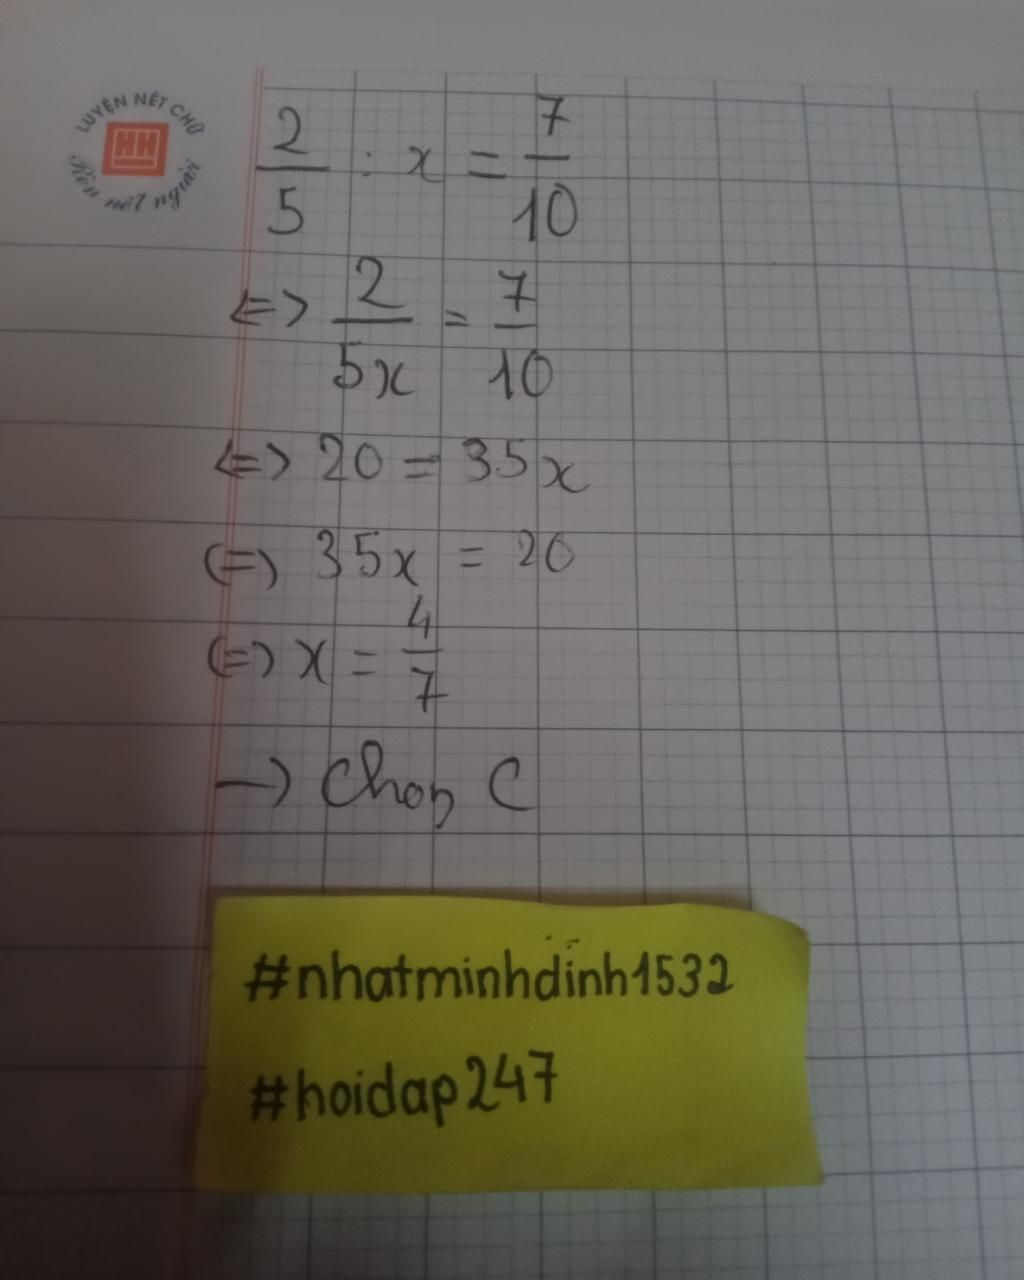 LUYỆN NÉT CHỮ
HH
Rèn nết người
2/5 : x = 7/10
<=> 2/5x = 7/10
<=> 20 = 35x
(=) 35x = 20
(=) x = 4/7
→ Chọn C
#nhatminhdinh1532
#hoidap247